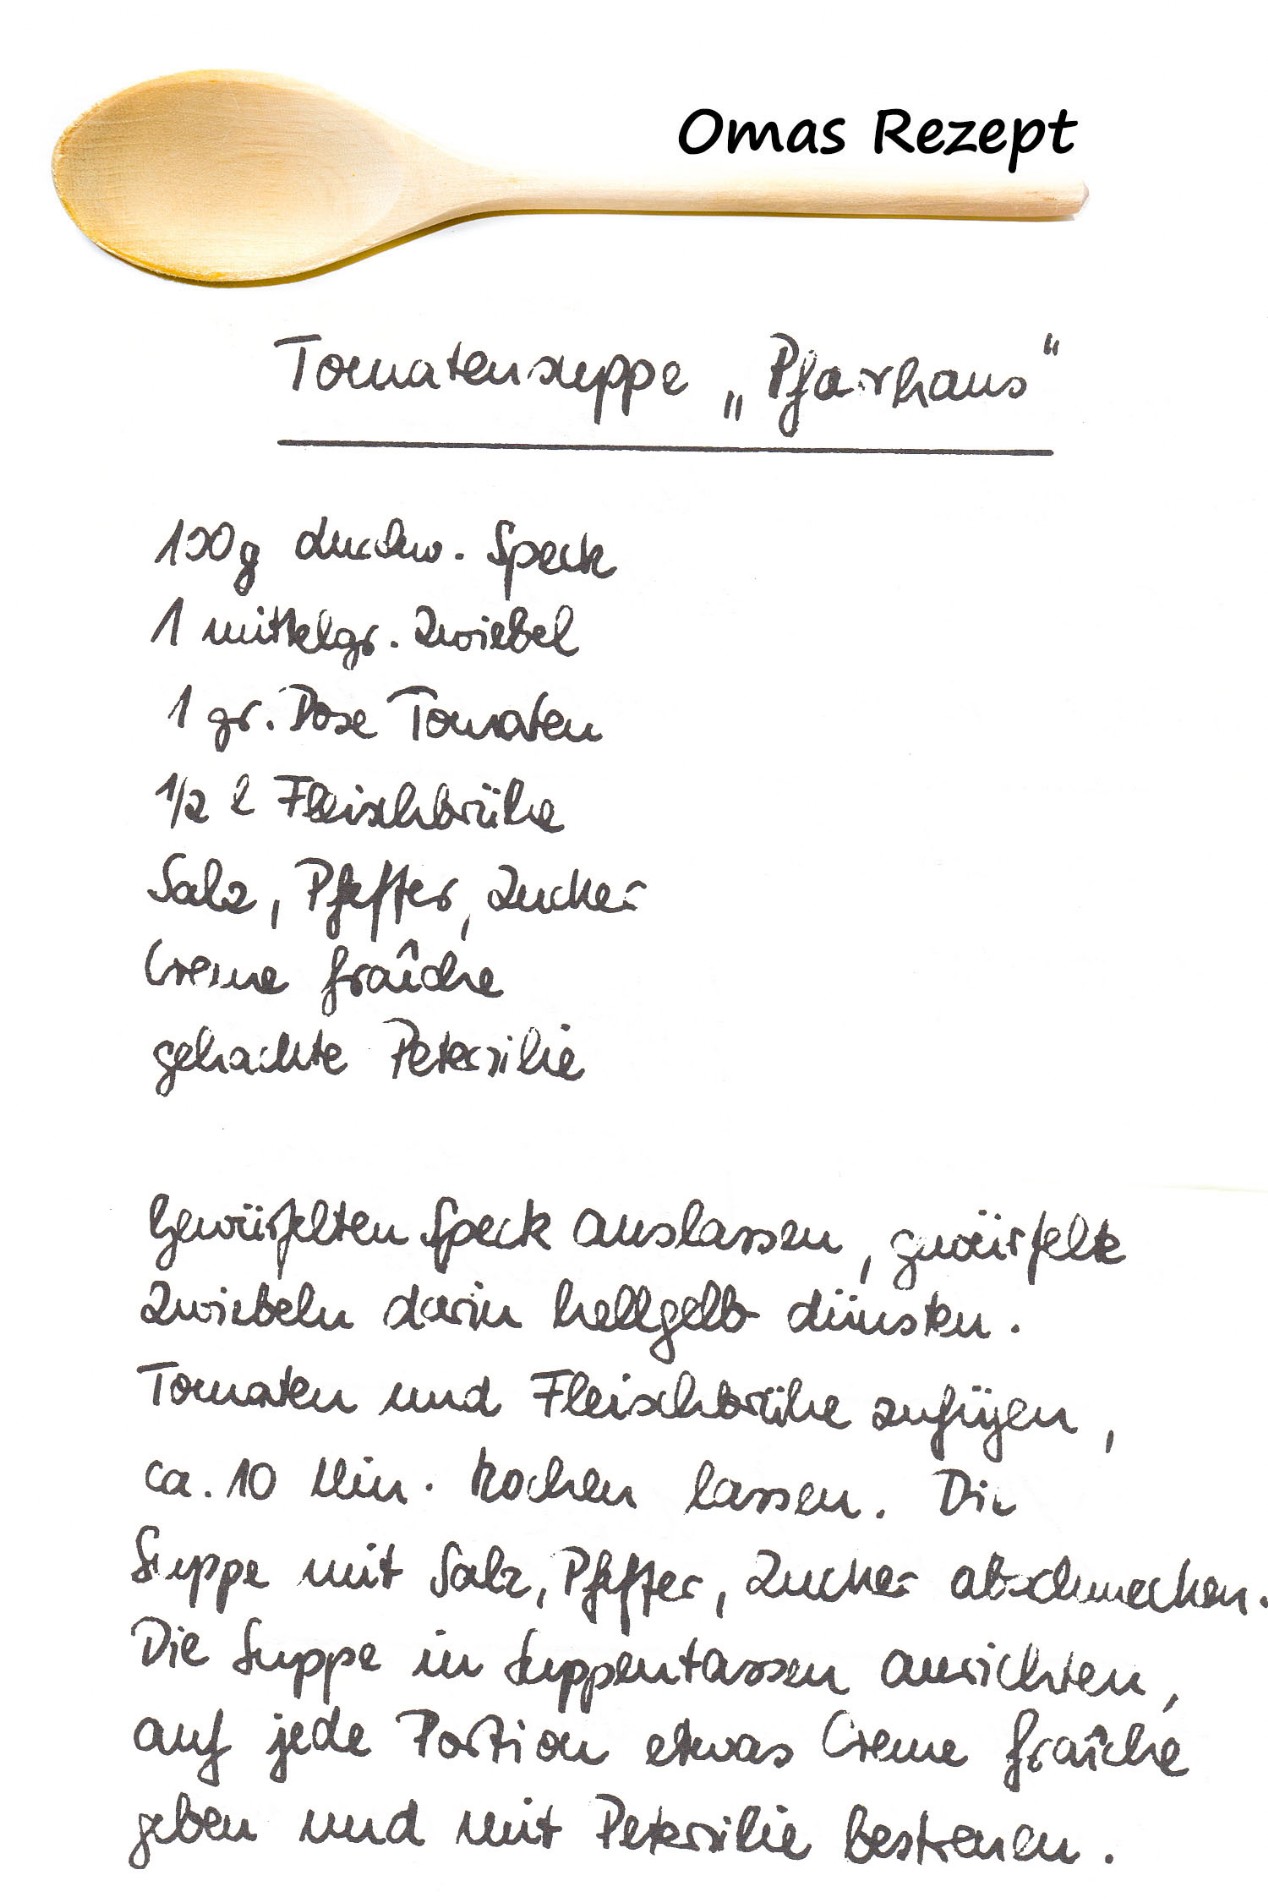 Omas Rezept
Tomatensuppe „Pfarrhaus“
100g durchw. Speck
1 mittelgr. Zwiebel
1 gr. Dose Tomaten
1/2 l Fleischbrühe
Salz, Pfeffer, Zucker
Creme fraîche
gehackte Petersilie
Gewürfelten Speck auslassen, gewürfelte
Zwiebeln darin hellgelb dünsten.
Tomaten und Fleischbrühe zufügen,
ca. 10 Min. kochen lassen. Die
Suppe mit Salz, Pfeffer, Zucker abschmecken.
Die Suppe in Suppentassen anrichten,
auf jede Portion etwas Creme fraîche
geben und mit Petersilie bestreuen.